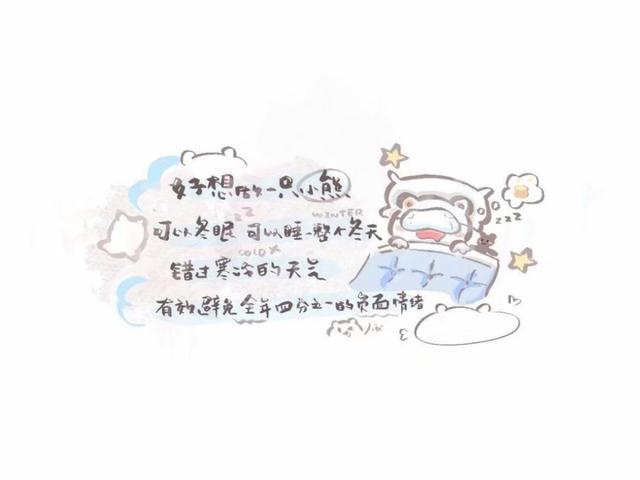 好想做一只小熊
zz
WINTER
zzz
可以冬眠 可以睡一整个冬天
COLD
错过寒冷的天气
有效避免全年四分之一的负面情绪